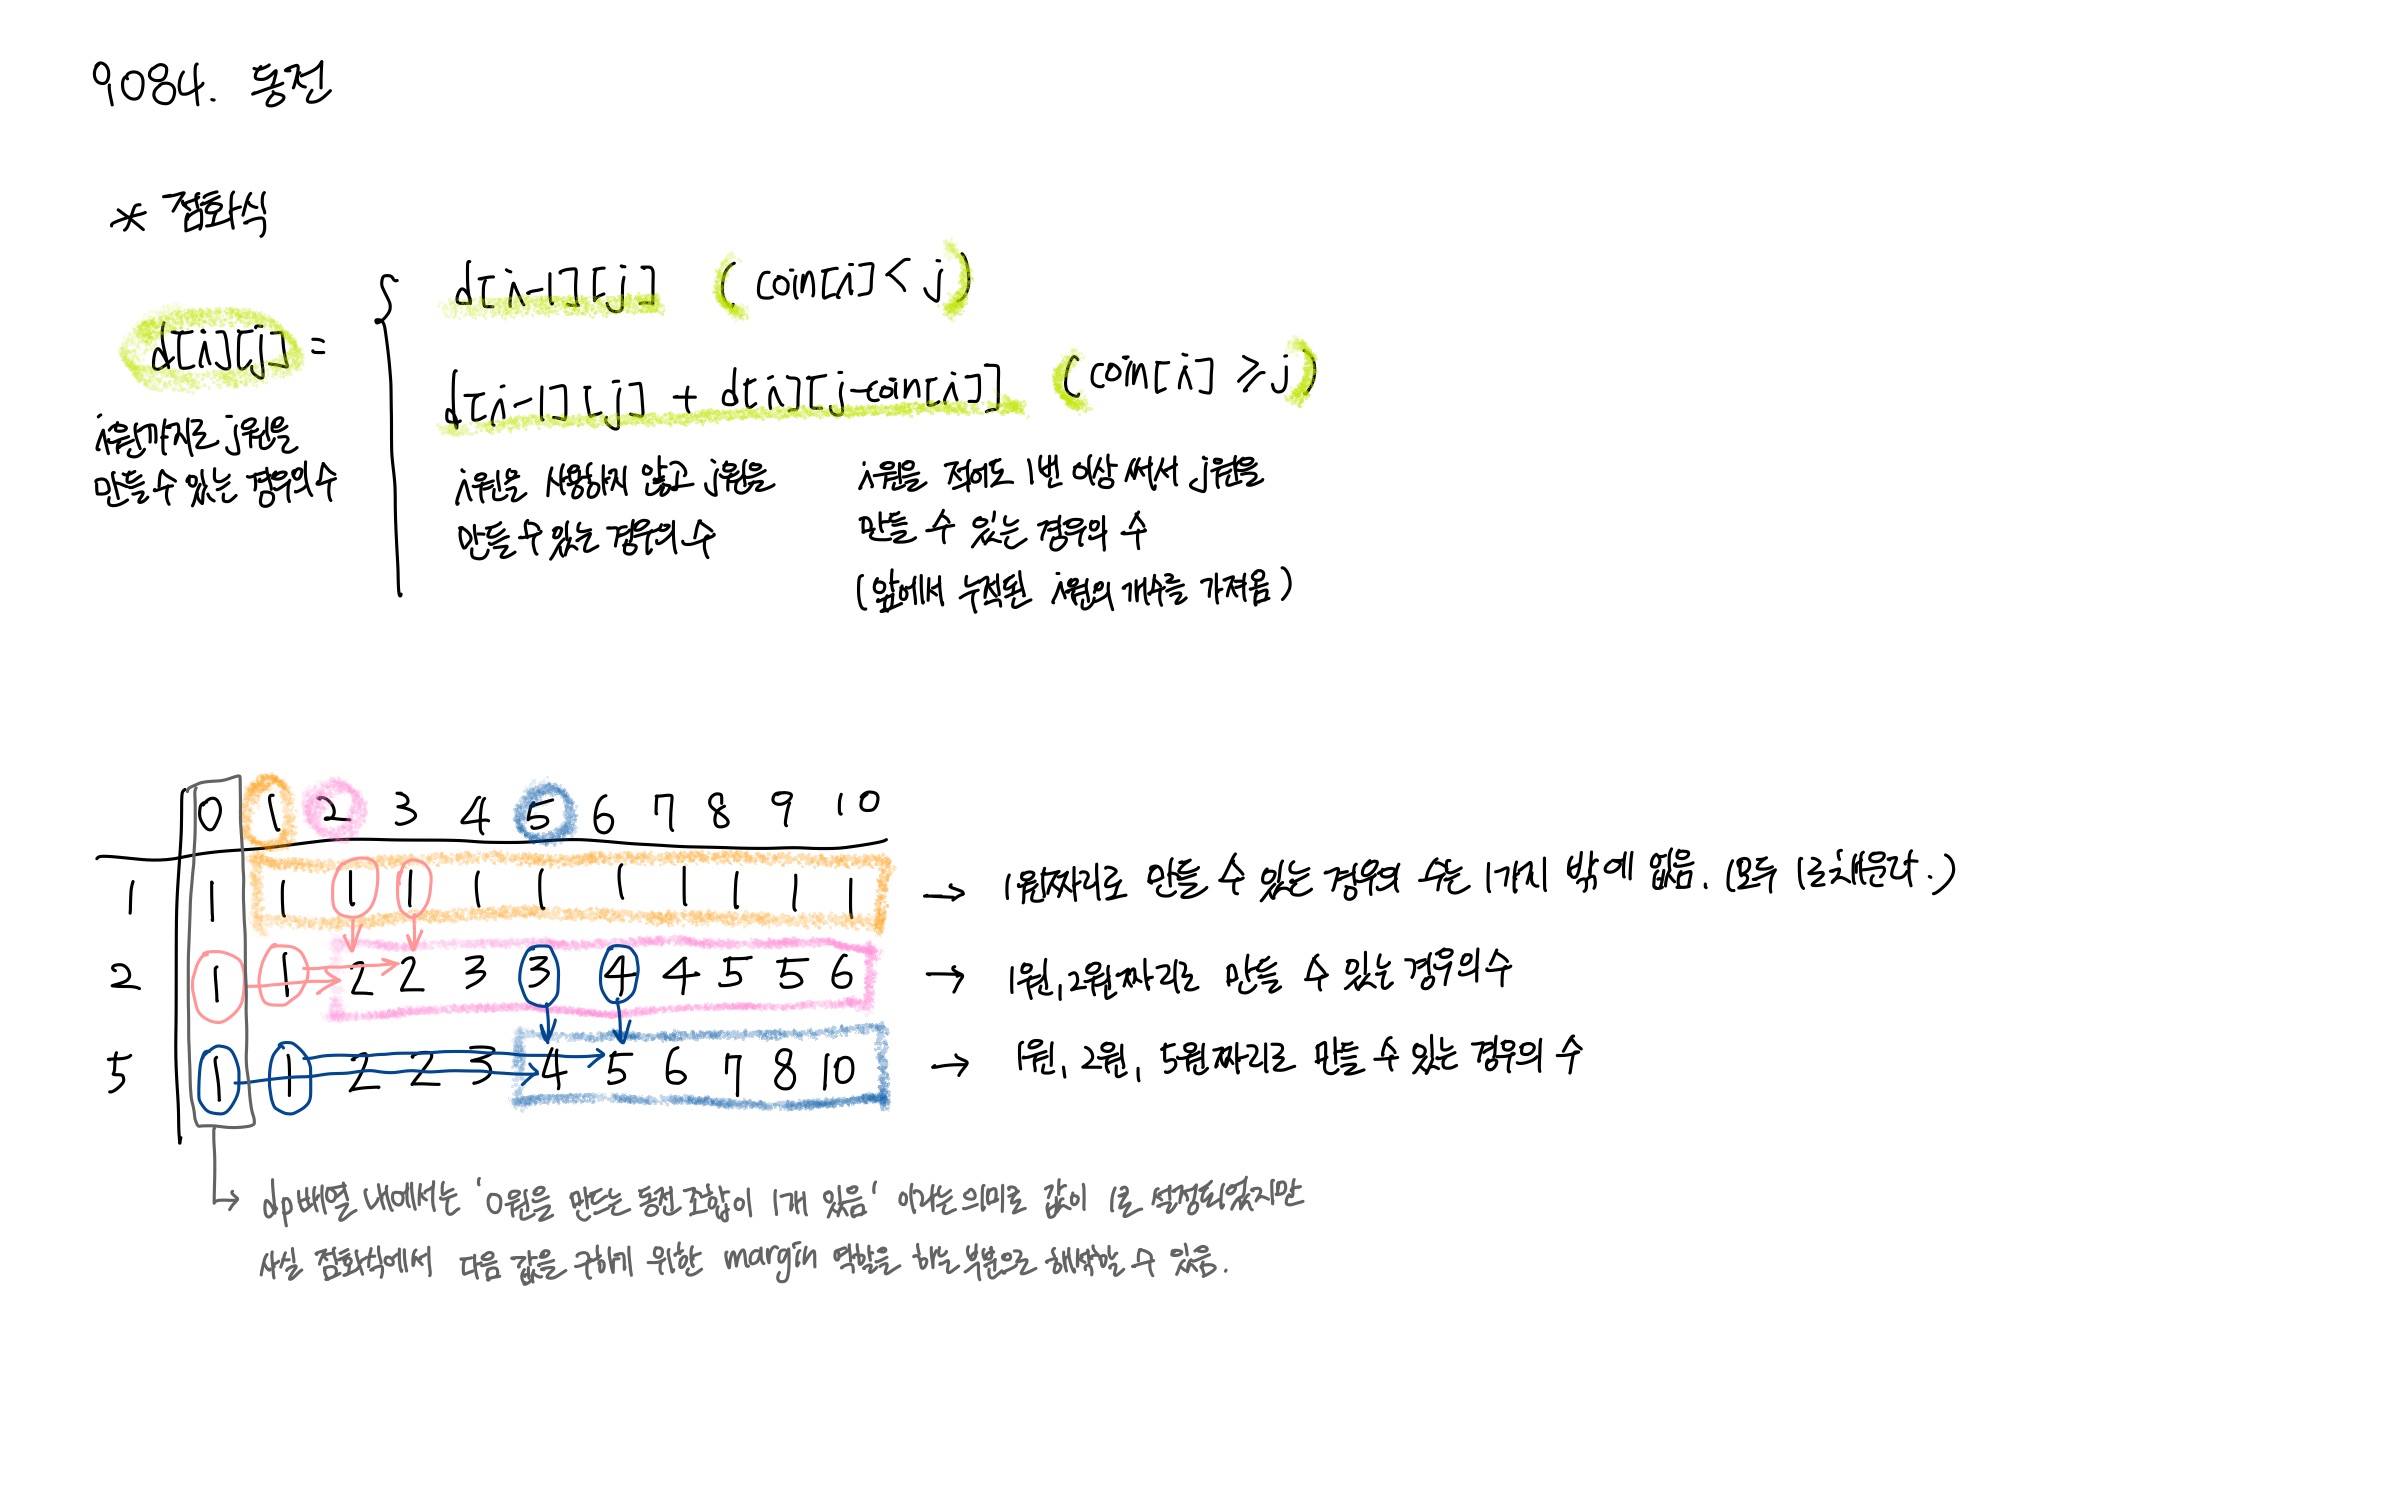 9084. 동전
* 점화식
d[i-1][j] (coin[i] < j)
d[i][j] =
d[i-1][j] + d[i][j-coin[i]] (coin[i] ≥ j)
i원까지로 j원을
만들 수 있는 경우의 수
i원을 사용하지 않고 j원을
만들 수 있는 경우의 수
i원을 적어도 1번 이상 써서 j원을
만들 수 있는 경우의 수
(앞에서 누적된 i원의 개수를 가져옴)
0 1 2 3 4 5 6 7 8 9 10
1 1 1 1 1 1 1 1 1 1 1 1 → 1원짜리로 만들 수 있는 경우의 수는 1가지 밖에 없음. (모두 1로 채운다.)
2 1 1 2 2 3 3 4 4 5 5 6 → 1원, 2원짜리로 만들 수 있는 경우의 수
5 1 1 2 2 3 4 5 6 7 8 10 → 1원, 2원, 5원짜리로 만들 수 있는 경우의 수
dp배열 내에서는 '0원을 만드는 동전 조합이 1개 있음' 이라는 의미로 값이 1로 설정되었지만
사실 점화식에서 다음 값을 구하기 위한 margin 역할을 하는 부분으로 해석할 수 있음.